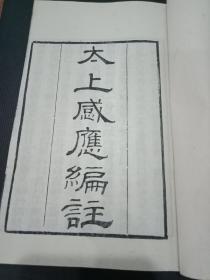 太上感應編註